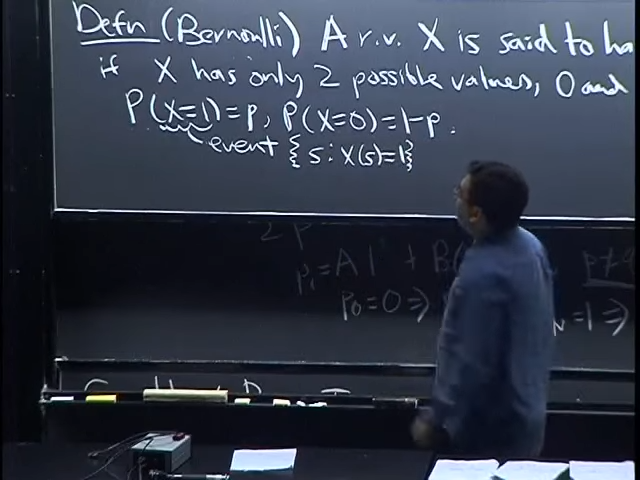 Defn (Bernoulli) A r.v. X is said to ha
if X has only 2 possible values, 0 and
P(X=1)=p, P(X=0)=1-p.
event {s: X(s)=1}
p_i = A 1^i + B
p_0 = 0 ⇒
= 1 ⇒